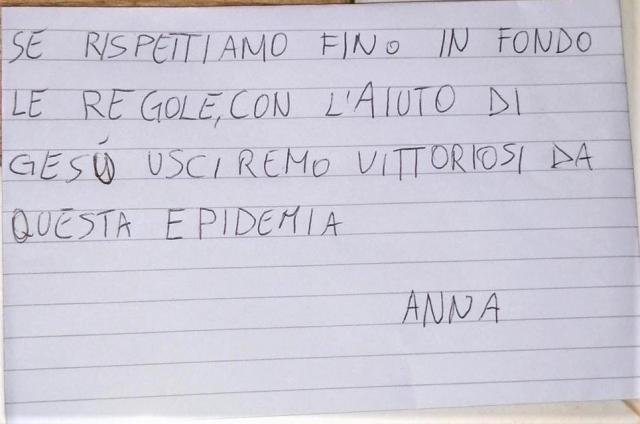 SE RISPETTIAMO FINO IN FONDO
LE REGOLE, CON L'AIUTO DI
GESÚ USCIREMO VITTORIOSI DA
QUESTA EPIDEMIA
ANNA